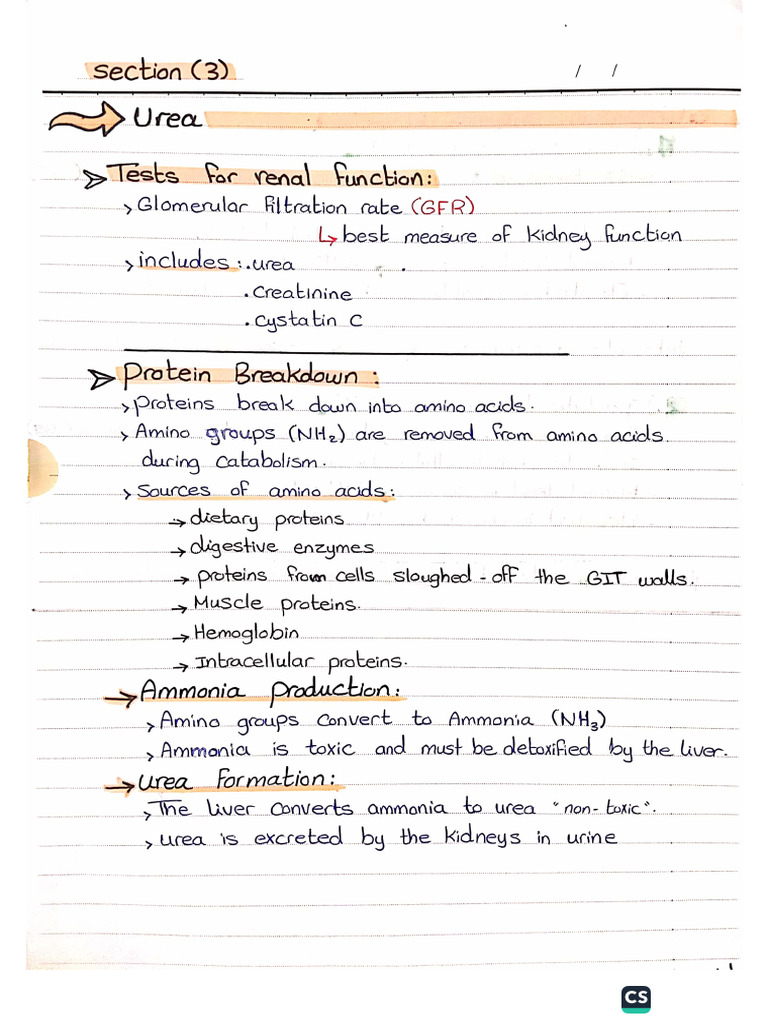 section (3) / /
Urea
Tests for renal function:
Glomerular filtration rate (GFR)
best measure of kidney function
includes: . urea
. creatinine
. cystatin C
Protein Breakdown:
Proteins break down into amino acids.
Amino groups (NH₂) are removed from amino acids
during catabolism.
Sources of amino acids:
→ dietary proteins
→ digestive enzymes
→ proteins from cells sloughed-off the GIT walls.
→ Muscle proteins.
→ Hemoglobin
→ Intracellular proteins.
→ Ammonia production:
Amino groups convert to Ammonia (NH₃)
Ammonia is toxic and must be detoxified by the liver.
→ urea formation:
The liver converts ammonia to urea "non-toxic".
urea is excreted by the kidneys in urine
CS